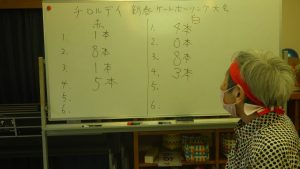 チロルデイ 新春ゲートボーリング大会
赤
1. 1本
2. 8本
3. 1本
4. 5本
5.
6.
白
1. 4本
2. 0本
3. 8本
4. 3本
5.
6.